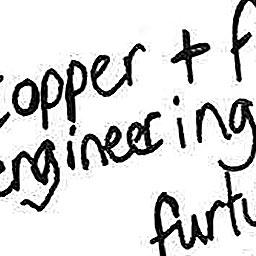 copper + f
engineering
furtu